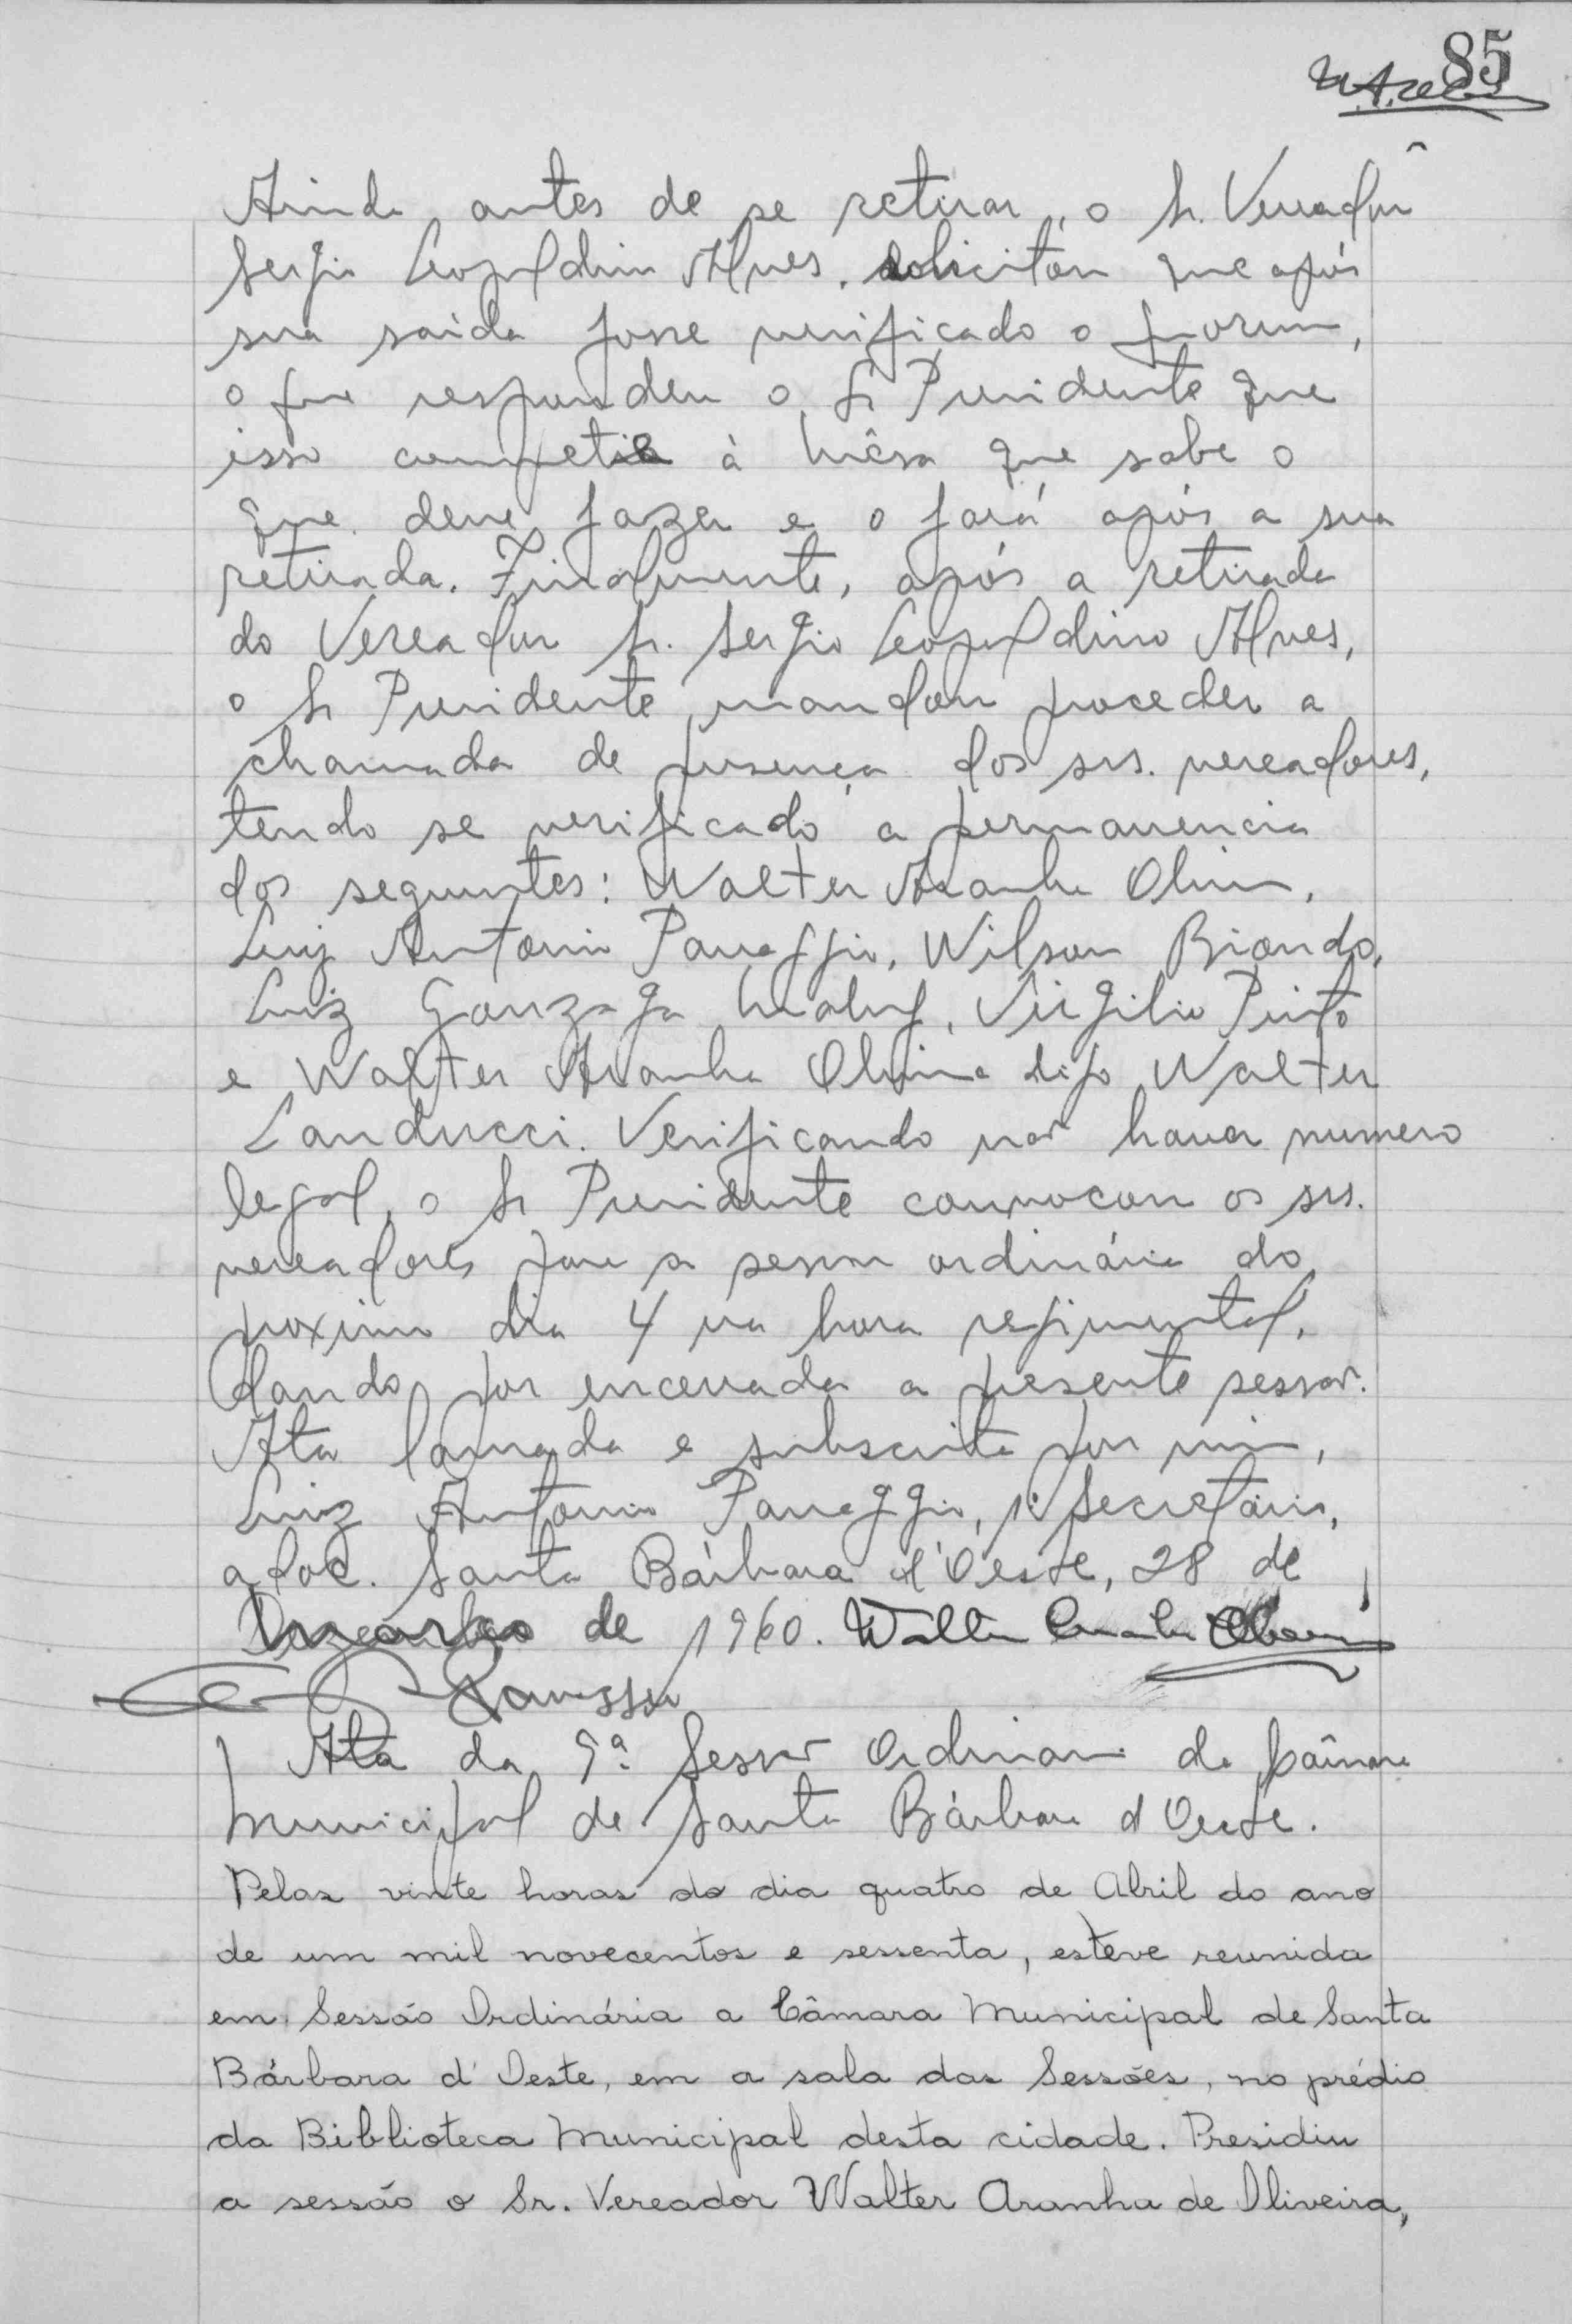 85
Ainda antes de se retirar, o Sr. Vereador
Sergio Leopoldino Alves, solicitou que após
sua saida fosse verificado o quorum,
o que respondeu o Sr Presidente que
isso competia à Mêsa que sabe o
que deve fazer e o fará após a sua
retirada. Finalmente, após a retirada
do Vereador Sr. Sergio Leopoldino Alves,
o Sr Presidente mandou proceder a
chamada de presença dos srs. vereadores,
tendo se verificado a permanencia
dos seguintes: Walter Aranha Oliveira,
Luiz Antonio Paneggio, Wilson Biondo,
Luiz Gonzaga Maluf, Virgilio Pinto
e Walter Aranha Oliveira digo Walter
Landucci. Verificando não haver numero
legal, o Sr Presidente convocou os srs.
vereadores para a sessão ordinária do
proximo dia 4 na hora regimental,
dando por encerrada a presente sessão.
Ata lavrada e subscrita por mim,
Luiz Antonio Paneggio, 1º Secretário,
adoc. Santa Bárbara d'Oeste, 28 de
Março de 1960. Walter Aranha Oliveira
Paneggio
Ata da 9ª Sessão Ordinaria da Câmara
Municipal de Santa Bárbara d'Oeste.
Pelas vinte horas do dia quatro de Abril do ano
de um mil novecentos e sessenta, esteve reunida
em Sessão Ordinária a Câmara Municipal de Santa
Bárbara d'Oeste, em a sala das Sessões, no prédio
da Biblioteca Municipal desta cidade. Presidiu
a sessão o Sr. Vereador Walter Aranha de Oliveira,